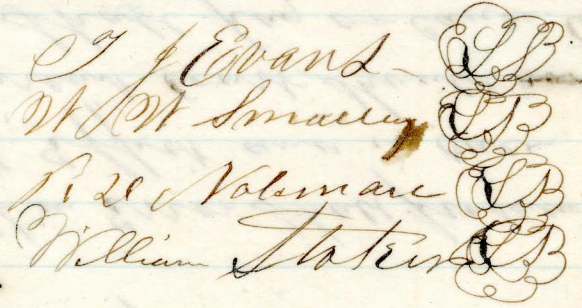 T J Evans LS
W W Smalley LS
R Noleman LS
William Stoker LS